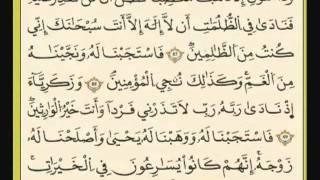 فَنَادَىٰ فِي ٱلظُّلُمَٰتِ أَن لَّآ إِلَٰهَ إِلَّآ أَنتَ سُبْحَٰنَكَ إِنِّي
كُنتُ مِنَ ٱلظَّٰلِمِينَ فَٱسْتَجَبْنَا لَهُۥ وَنَجَّيْنَٰهُ
مِنَ ٱلْغَمِّ وَكَذَٰلِكَ نُۨجِي ٱلْمُؤْمِنِينَ وَزَكَرِيَّآ
إِذْ نَادَىٰ رَبَّهُۥ رَبِّ لَا تَذَرْنِي فَرْدًا وَأَنتَ خَيْرُ ٱلْوَٰرِثِينَ
فَٱسْتَجَبْنَا لَهُۥ وَوَهَبْنَا لَهُۥ يَحْيَىٰ وَأَصْلَحْنَا لَهُۥ
زَوْجَهُۥٓ إِنَّهُمْ كَانُوا۟ يُسَٰرِعُونَ فِي ٱلْخَيْرَٰتِ